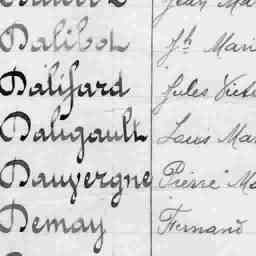 Dalibot Jh Mari
Dalifard Jules Victo
Daligault Louis Ma
Dauvergne Pierre Ma
Demay Fernand